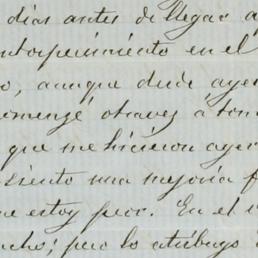 dias antes de llegar a
entorpecimiento en el
o, aunque desde ayer
omenzé otra vez á tom
que me hicieron ayer
siento una mejoria f
ue estoy peor. En el
ucho; pero lo atribuyo